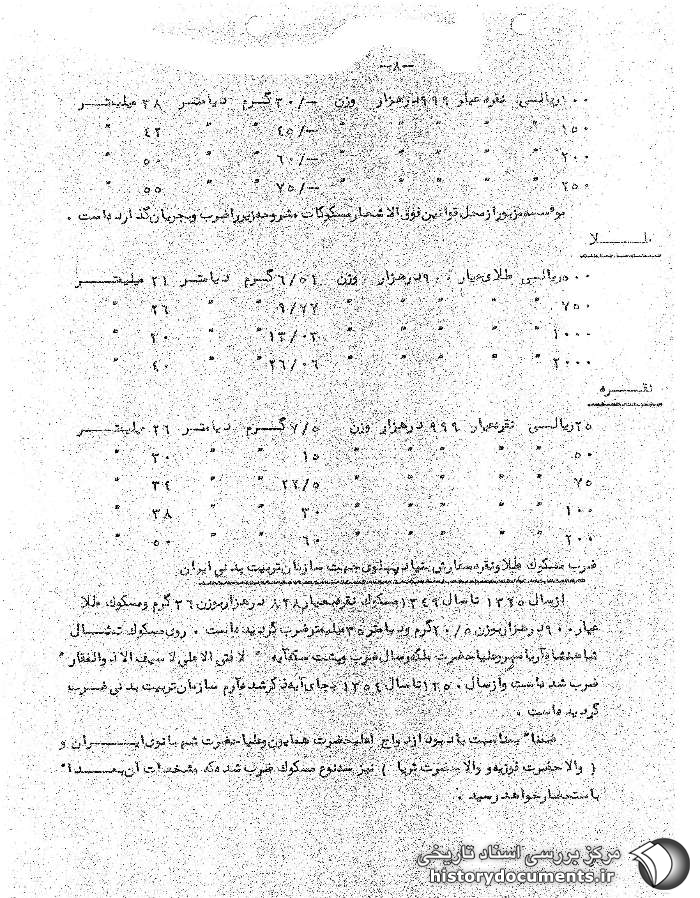 -۸-
۱۰۰ ریالی نقره عیار ۹۹۹ در هزار وزن -/۳۰ گرم دیامتر ۳۸ میلیمتر
۱۵۰ " " " " -/۴۵ " " ۴۲ "
۲۰۰ " " " " -/۶۰ " " ۵۰ "
۲۵۰ " " " " -/۷۵ " " ۵۵ "
موسسه مزبور از محل قوانین فوق الاشعار مسکوکات مشروحه زیر را ضرب و بجریان گذارده است .
طلا
۵۰۰ ریالی طلای عیار ۹۰۰ در هزار وزن ۶/۵۱ گرم دیامتر ۲۱ میلیمتر
۷۵۰ " " " " ۹/۷۷ " " ۲۶ "
۱۰۰۰ " " " " ۱۳/۰۳ " " ۳۰ "
۲۰۰۰ " " " " ۲۶/۰۶ " " ۴۰ "
نقره
۲۵ ریالی نقره عیار ۹۹۹ در هزار وزن ۷/۵ گرم دیامتر ۲۶ میلیمتر
۵۰ " " " " ۱۵ " " ۳۰ "
۷۵ " " " " ۲۲/۵ " " ۳۴ "
۱۰۰ " " " " ۳۰ " " ۳۸ "
۲۰۰ " " " " ۶۰ " " ۵۰ "
ضرب مسکوک طلا و نقره سفارش بنیاد پهلوی جهت سازمان تربیت بدنی ایران
از سال ۱۳۳۵ تا سال ۱۳۴۹ مسکوک نقره بعیار ۸۲۸ در هزار بوزن ۲۶ گرم و مسکوک طلا
عیار ۹۰۰ در هزار بوزن ۲۰/۵ گرم و دیامتر ۳۵ میلیمتر ضرب گردیده است . روی مسکوک تمثال
شاهنشاه آریامهر و علیاحضرت ملکه و سال ضرب و پشت سکه آیه " لا فتی الا علی لا سیف الا ذوالفقار "
ضرب شده است و از سال ۱۳۵۰ تا سال ۱۳۵۴ بجای آیه ذکر شده آرم سازمان تربیت بدنی ضرب
گردیده است .
ضمنا" بمناسبت یادبود ازدواج اعلیحضرت همایون و علیاحضرت شهبانوی ایران و
( والاحضرت فوزیه و والاحضرت ثریا ) نیز سه نوع مسکوک ضرب شده که مشخصات آن بعدا"
باستحضار خواهد رسید .
مرکز بررسی اسناد تاریخی
historydocuments.ir